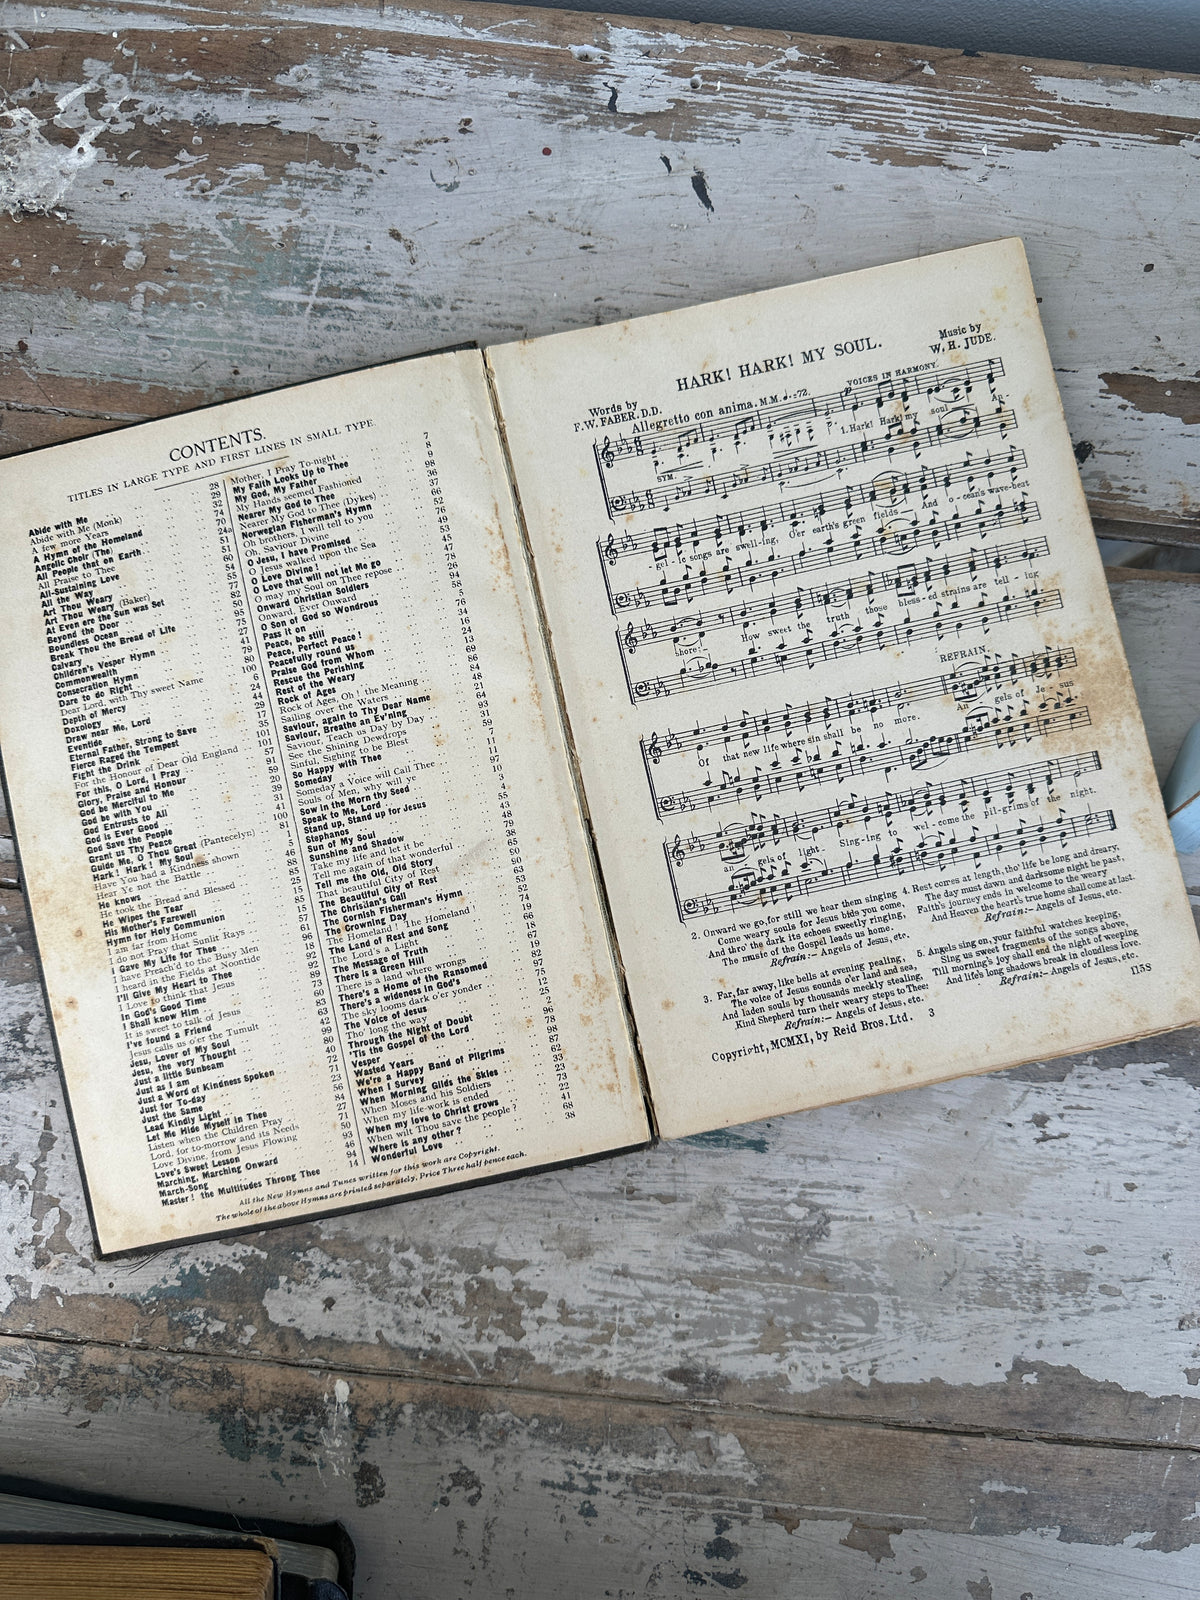 CONTENTS.
TITLES IN LARGE TYPE AND FIRST LINES IN SMALL TYPE.
Abide with Me 28
Abide with Me (Monk) 29
A few more Years 32
A Hymn of the Homeland 74
Angelic Choir (The) 70
All People that on Earth 24a
All Praise to Thee 51
All-Sustaining Love 60
All the Way 54
Art Thou Weary 55
Art Thou Weary (Baker) 77
At Even ere the Sun was Set 82
Beyond the Door 50
Boundless Ocean 95
Break Thou the Bread of Life 75
Calvary 27
Children's Vesper Hymn 41
Commonwealth 79
Consecration Hymn 80
Dare to do Right 100
Dear Lord, with Thy sweet Name 6
Depth of Mercy 24
Doxology 44
Draw near Me, Lord 29
Eventide 17
Eternal Father, Strong to Save 35
Fierce Raged the Tempest 101
Fight the Drink 101
For the Honour of Dear Old England 57
For this, O Lord, I Pray 91
Glory, Praise and Honour 59
God be Merciful to Me 20
God be with You 39
God Entrusts to All 31
God is Ever Good 41
God Save the People 100
Grant us Thy Peace 81
Guide Me, O Thou Great (Pantecelyn) 5
Hark! Hark! My Soul 46
Have You had a Kindness shown 88
Hear Ye not the Battle 85
He knows 25
He took the Bread and Blessed 85
He Wipes the Tear 15
His Mother's Farewell 61
Hymn for Holy Communion 57
I am far from Home 96
I do not Pray that Sunlit Rays 18
I Gave My Life for Thee 92
I have Preach'd to the Busy Men 92
I heard in the Fields at Noontide 73
I'll Give My Heart to Thee 89
I Love to think that Jesus 73
In God's Good Time 60
I Shall know Him 63
It is sweet to talk of Jesus 83
I've found a Friend 42
Jesus calls us o'er the Tumult 99
Jesu, Lover of My Soul 80
Jesu, the very Thought 40
Just a little Sunbeam 72
Just as I am 71
Just a Word of Kindness Spoken 23
Just for To-day 56
Just the Same 84
Lead Kindly Light 27
Let Me Hide Myself in Thee 71
Listen when the Children Pray 50
Lord, for to-morrow and its Needs 93
Love Divine, from Jesus Flowing 46
Love's Sweet Lesson 94
Marching, Marching Onward
March-Song
Master! the Multitudes Throng Thee 14
Mother, I Pray To-night 7
My Faith Looks Up to Thee 8
My God, My Father 9
My Hands seemed Fashioned 98
Nearer My God to Thee 36
Nearer My God to Thee (Dykes) 66
Norwegian Fisherman's Hymn 52
Oh brothers, I will tell to you 76
Oh, Saviour Divine 49
O Jesu, I have Promised 53
O Jesus walked upon the Sea 45
O Love Divine! 47
O Love that will not let Me go 78
O may my Soul on Thee repose 26
Onward Christian Soldiers 94
Onward, Ever Onward 58
O Son of God so Wondrous 5
Pass it on 76
Peace, be still 34
Peace, Perfect Peace! 16
Peacefully round us 24
Praise God from Whom 13
Rescue the Perishing 69
Rest of the Weary 86
Rock of Ages 84
Rock of Ages, Oh! the Meaning 48
Sailing over the Waters 21
Saviour, again to Thy Dear Name 64
Saviour, Breathe an Ev'ning 93
Saviour, Teach us Day by Day 31
See the Shining Dewdrops 59
Sinful, Sighing to be Blest 7
So Happy with Thee 1
Someday 11
Someday a Voice will Call Thee 11
Souls of Men, why will ye 97
Sow in the Morn thy Seed 10
Speak to Me, Lord 3
Stand up, Stand up for Jesus 4
Stephanos 55
Sun of My Soul 43
Sunshine and Shadow 48
Take my life and let it be 79
Tell me again of that wonderful 38
Tell me the Old, Old Story 65
That beautiful City of Rest 90
The Beautiful City of Rest 63
The Christian's Call 53
The Cornish Fisherman's Hymn 52
The Crowning Day 74
The Homeland! The Homeland! 19
The Land of Rest and Song 66
The Lord's a Light 18
The Message of Truth 67
There is a Green Hill 19
There is a land where wrongs 82
There's a Home of the Ransomed 17
There's a wideness in God's 75
The sky looms dark o'er yonder 12
The Voice of Jesus 25
Tho' long the way 2
Through the Night of Doubt 96
'Tis the Gospel of the Lord 78
Vesper 98
Wasted Years 87
We're a Happy Band of Pilgrims 62
When I Survey 33
When Morning Gilds the Skies 23
When Moses and his Soldiers 73
When my life-work is ended 22
When my love to Christ grows 41
When wilt Thou save the people? 68
Where is any other? 38
Wonderful Love
All the New Hymns and Tunes written for this work are Copyright.
The whole of the above Hymns are printed separately, Price Three half pence each.
HARK! HARK! MY SOUL.
Words by
F. W. FABER, D.D.
Music by
W. H. JUDE.
Allegretto con anima. M.M. ♩.=72.
VOICES IN HARMONY.
SYM.
1. Hark! Hark! my soul An-
- gel - ic songs are swell-ing, O'er earth's green fields And o-cean's wave-beat
shore: How sweet the truth those bless-ed strains are tell-ing
REFRAIN.
Of that new life where sin shall be no more. An - gels of Je - sus
an - gels of light. Sing-ing to wel-come the pil-grims of the night.
2. Onward we go, for still we hear them singing
Come weary souls for Jesus bids you come,
And thro' the dark its echoes sweetly ringing,
The music of the Gospel leads us home.
Refrain:- Angels of Jesus, etc.
3. Far, far away, like bells at evening pealing,
The voice of Jesus sounds o'er land and sea,
And laden souls by thousands meekly stealing,
Kind Shepherd turn their weary steps to Thee:
Refrain:- Angels of Jesus, etc.
4. Rest comes at length, tho' life be long and dreary,
The day must dawn and darksome night be past,
Faith's journey ends in welcome to the weary
And Heaven the heart's true home shall come at last.
Refrain:- Angels of Jesus, etc.
5. Angels sing on, your faithful watches keeping,
Sing us sweet fragments of the songs above,
Till morning's joy shall end the night of weeping
And life's long shadows break in cloudless love.
Refrain:- Angels of Jesus, etc.
Copyright, MCMXI, by Reid Bros. Ltd. 3